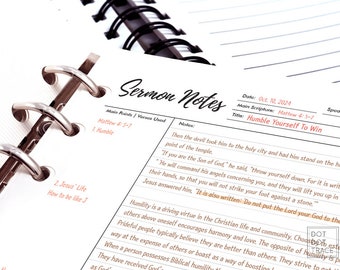 Sermon Notes
Date: Oct. 10, 2024
Main Scripture: Matthew 4: 1-7
Title: Humble Yourself To Win
Main Points / Verses Used
Notes:
Matthew 4: 1-7
1. Humble
2. Jesus' Life
How to be like J
Then the devil took him to the holy city and had him stand on the h
point of the temple.
"If you are the Son of God," he said, "throw yourself down. For it is writt
"'He will command his angels concerning you, and they will lift you up in
their hands, so that you will not strike your foot against a stone.'"
Jesus answered him, "It is also written: Do not put the Lord your God to th
Humility is a driving virtue in the Christian life and community. Church
others above oneself encourages harmony and love. The opposite of humility is
Prideful people typically believe they are better than others. They strive t
way at the expense of others or boast as a way of boosting
When a person possesses Biblical humility
They have received God's
DOT
TRACE